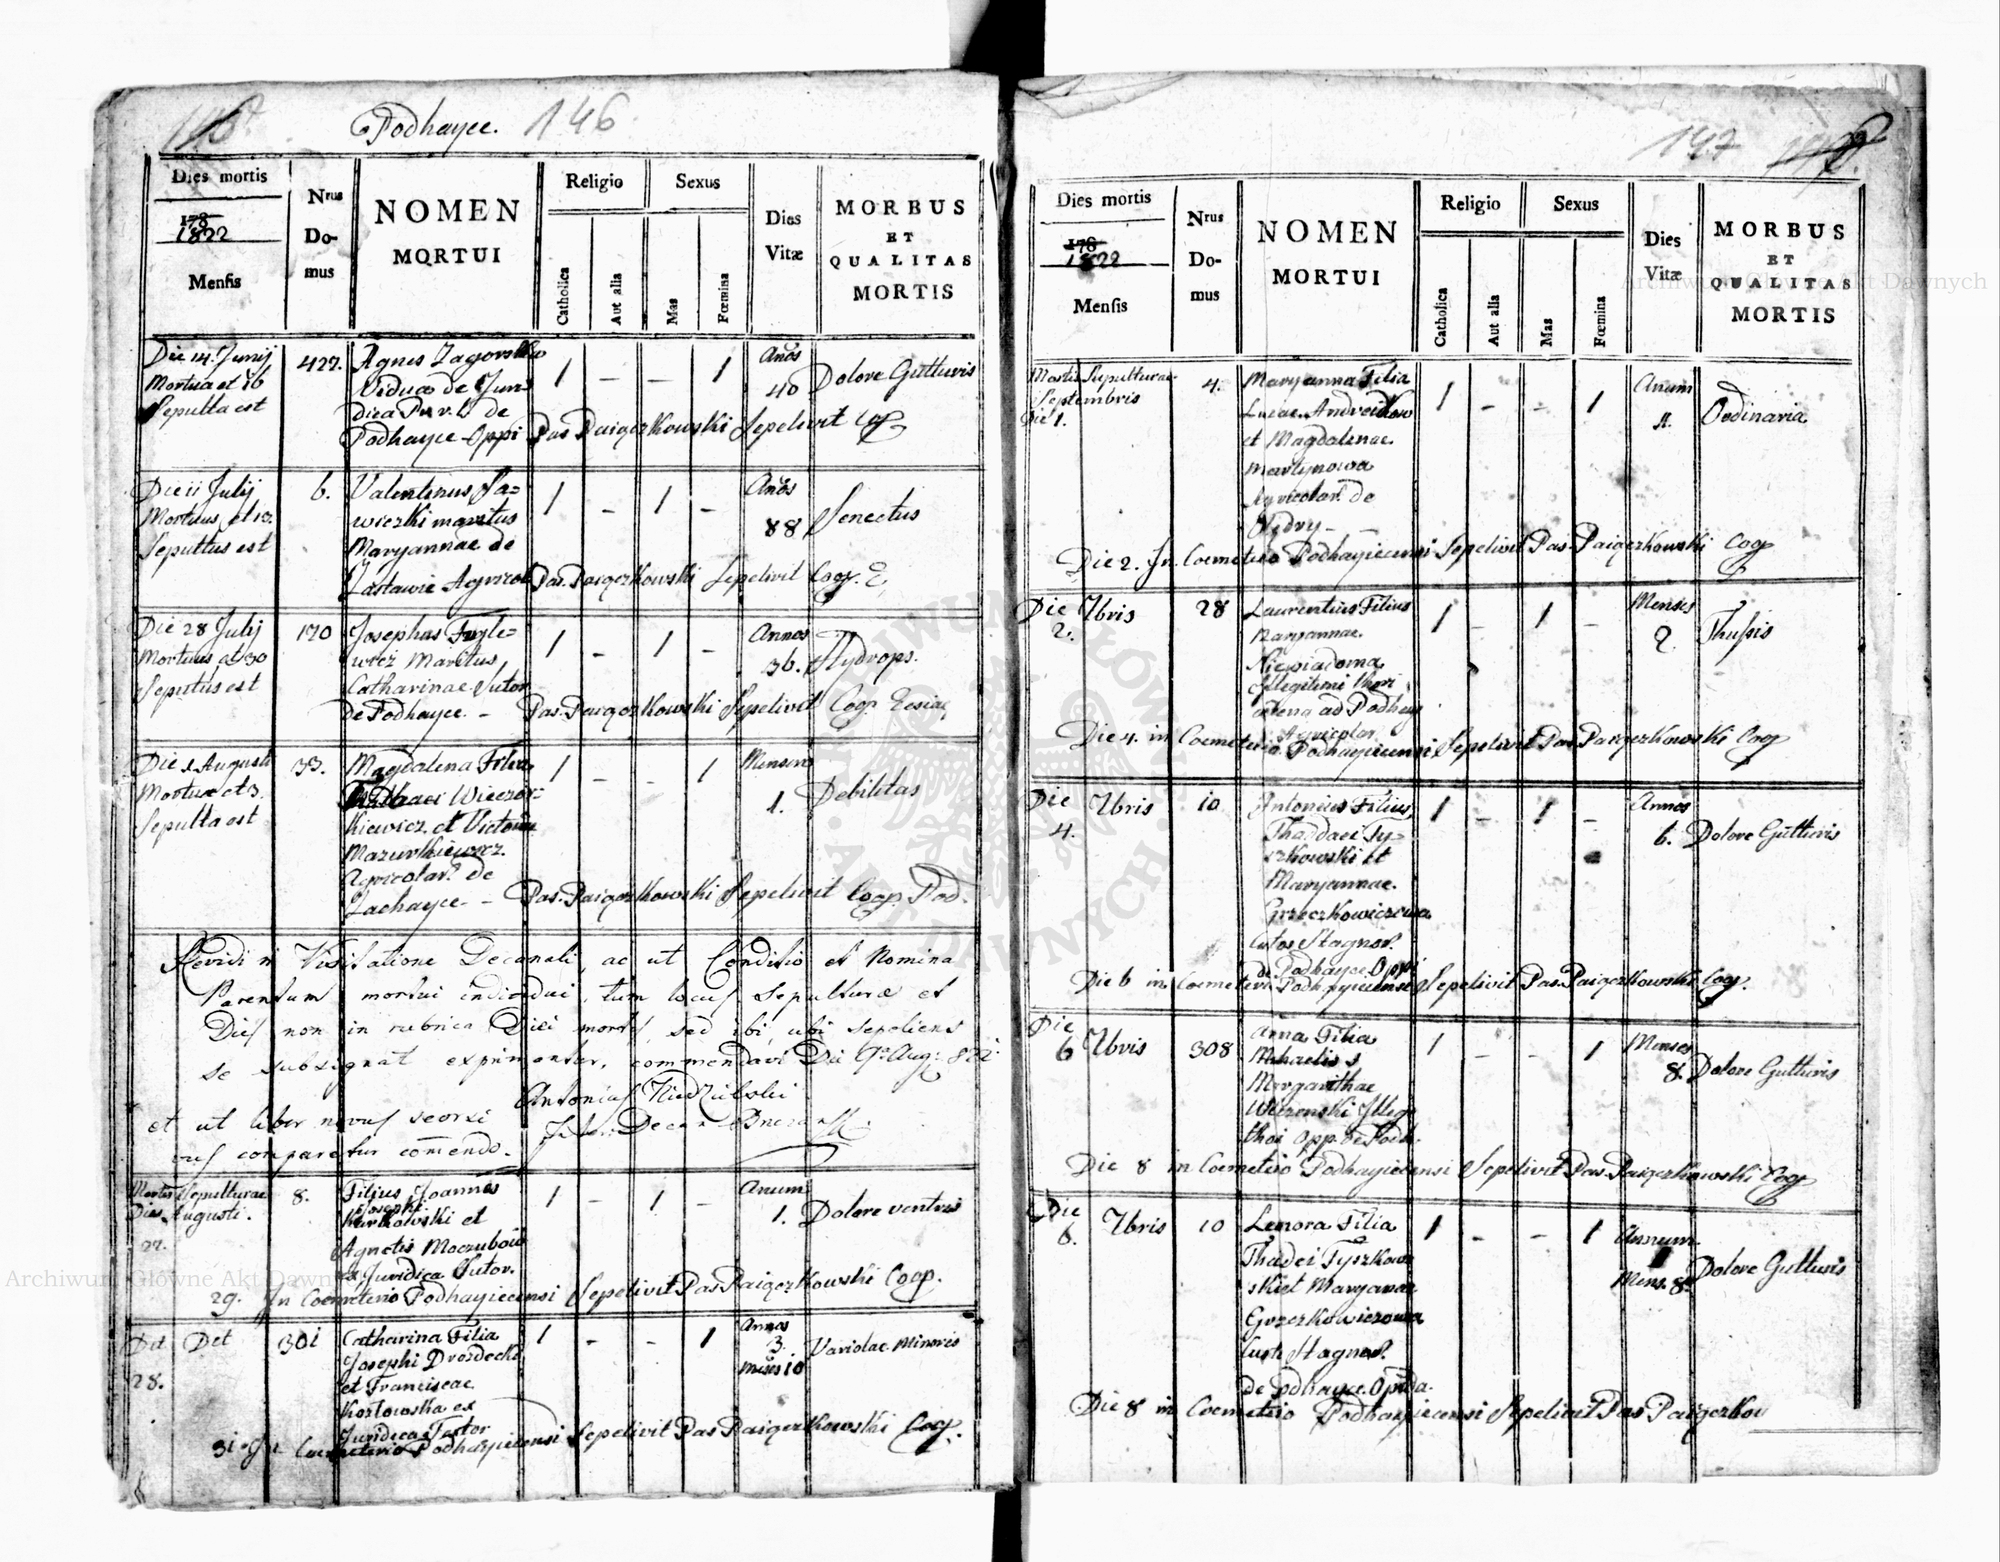 Podhayce. 146
Dies mortis
178
1822
Mensis
Nrus Domus
NOMEN
MORTUI
Religio
Catholica
Aut alia
Sexus
Mas
Fœmina
Dies
Vitæ
MORBUS
ET
QUALITAS
MORTIS
Die 14. Junij 427. Agnes Zagorska 1 – – 1 Anos Dolore Gutturis
Mortua et 16 Vidua de Juris 40
Sepulta est dica
Podhayce Oppi Pas Paigerkowski Sepelivit Cop
Die 11 Julij 6. Valentinus Sa= 1 – 1 – Anos Senectus
Mortuus et 13. wiczki maritus 88
Sepultus est Maryannae de
Zastawie Agricol Pas. Paigerkowski Sepelivit Coop.
Die 28 Julij 170 Josephus 1 – 1 – Annos Hydrops.
Mortuus et 30 Maritus 36.
Seputus est Catharinae Sutor
de Podhayce. – Pas. Paigerkowski Sepelivit Coop
Die 1 Augusti 33. Magdalena Filia 1 – – 1 Mensem Debilitas
Mortua et 3. Wieczor= 1.
Sepulta est kiewicz et Victoria
Mazurkiewicz.
Agricolar. de
Zachayce – – Pas. Paigerkowski Sepelivit Coop. Pod.
Revidi in Visitatione Decanali, ac ut Conditio et Nomina
Parentum mortui individui, tum locus Sepulturæ et
Dies non in rubrica Diei mortis, sed ibi, ubi sepeliens
se subsignat exprimantur, commendavi Die 9a Aug: 822.
Antonius
et ut liber novus seorsi
vus comparetur comendo.
Mortis Sepulturae 8. Filius Joannes 1 – 1 – Anum Dolore ventris
Dies Augusti. Josephi 1.
27. Kurkowski et
Agnetis
ex Juridica Sutor.
29. In Coemeterio Podhayiecensi Sepelivit Pas Paigerkowski Coop.
Det Det 301 Catharina Filia 1 – – 1 Annos Variolae Minoris
28. Josephi Drozdecki 3.
et Franciscae Mses 10
Kozlowska ex
Juridica
31 In Coemeterio Podhayiecensi Sepelivit Pas Paigerkowski Coop.
147
Dies mortis
178
1822
Mensis
Nrus Domus
NOMEN
MORTUI
Religio
Catholica
Aut alia
Sexus
Mas
Fœmina
Dies
Vitæ
MORBUS
ET
QUALITAS
MORTIS
Mortis Sepulturae 4. Maryanna Filia 1 – – 1 Anum Ordinaria
Septembris Lucae
Die 1. et Magdalenae
Martynowa
Agricolar. de
Die 2. In Coemeterio Podhayiecensi Sepelivit Pas. Paigerkowski Coop
Die 7bris 28 Laurentius Filius 1 – 1 – Menses Thussis
2. Maryannae 2
Niewiadoma
Illegitimi thori
ad Podhay
Agricolar
Die 4. in Coemeterio Podhayiecensi Sepelivit Pas Paigerkowski Coop
Die 7bris 10 Antonius Filius 1 – 1 – Annos Dolore Gutturis
4. Thaddaei Ty= 6.
szkowski et
Maryannae
Grzeczkowiczowa
Custos Stagnor.
de Podhayce Oppi
Die 6 in Coemeterio Podhayiecensi Sepelivit Pas. Paigerkowski Coop.
Die 7bris 308 Anna Filia 1 – – 1 Menses Dolore Gutturis
6 Michaelis 8.
Margarithae
Illegi
thori Opp. de Podh.
Die 8 in Coemeterio Podhayiecensi Sepelivit Pas. Paigerkowski Coop
Die 7bris 10 Lenora Filia 1 – – 1 Annum Dolore Gutturis
6. Thadei Tyszkow Mens. 8
ski et Maryanae
Grzeczkowiczowa
Custo Stagnor.
de Podhayce. Opida.
Die 8 in Coemeterio Podhayiecensi Sepelivit Pas Paigerkow
Archiwum Główne Akt Dawnych
Archiwum Główne Akt Dawnych
ARCHIWUM GŁÓWNE AKT DAWNYCH